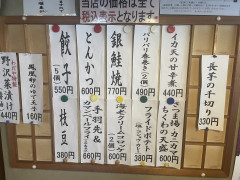 当店の価格は全て
税込表示となります
長芋の千切り
330円
イカ天の甘辛煮
440円
ちくわの天盛
600円
パリパリ春巻き(2個)
490円
フライドポテト
380円
銀鮭焼
770円
海老クリームコロッケ
600円
とんかつ
660円
手羽先&
600円
餃子
550円
枝豆
380円
鳳凰卵の味玉子
160円
野沢菜漬け
440円